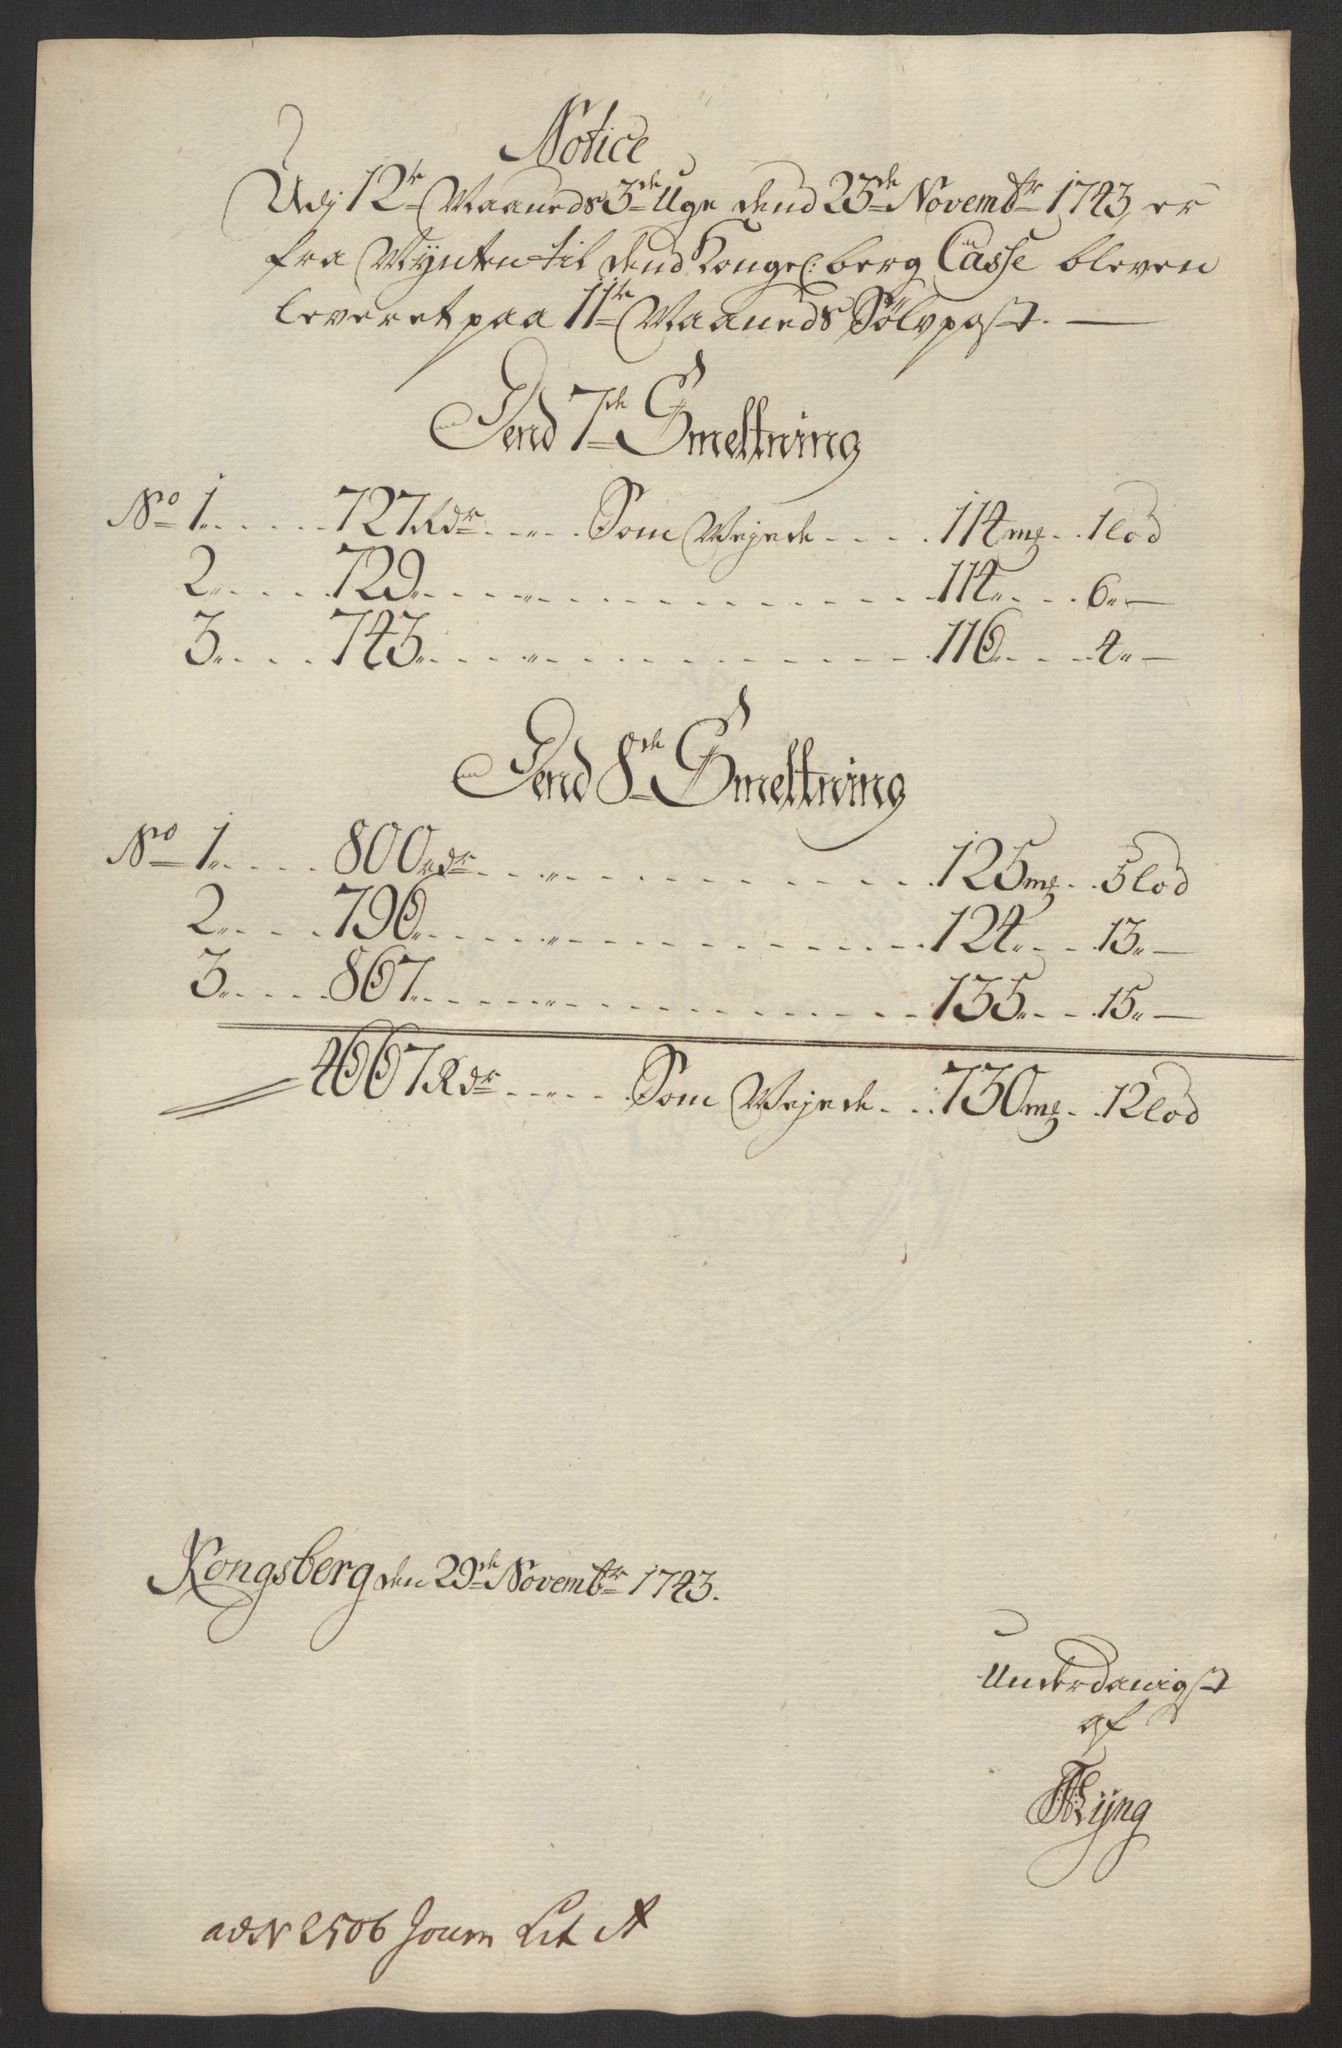 Notice
Udj 12te Maaneds 3de Uge dend 23de Novembr 1743, er
fra Mÿnten til dend Kongel: berg Casse bleven
leveret paa 11te Maaneds Sölvpost. —
Dend 7de Smeltning
No 1. . . . . . 727 Rdr . . „ . . Som Vejede . . . . 114 mk . . 1 lod
2. . . . . 729. . . . . „ . . . . . . . . . . 114„ . . . 6„ —
3. . . . . 743. . . . . „ . . . . . . . . . . 116. . . . 4„ —
Dend 8de Smeltning
No 1. . . . . 800 rdr . . . „ . . . . . . . . . . 125 mk . . 5 lod
2. . . . . 796. . . . . „ . . . . . . . . . . 124„ . . . 13„ —
3. . . . . 867. . . . . „ . . . . . . . . . . 135„ . . . 15„ —
4667 Rdr . . . „ . . . Som Vejede . . . 730 mk . . 12 lod
Kongsberg den 29de Novembr 1743.
Underdanigst
af
TLÿng
ad N 2506 Journ Lit A